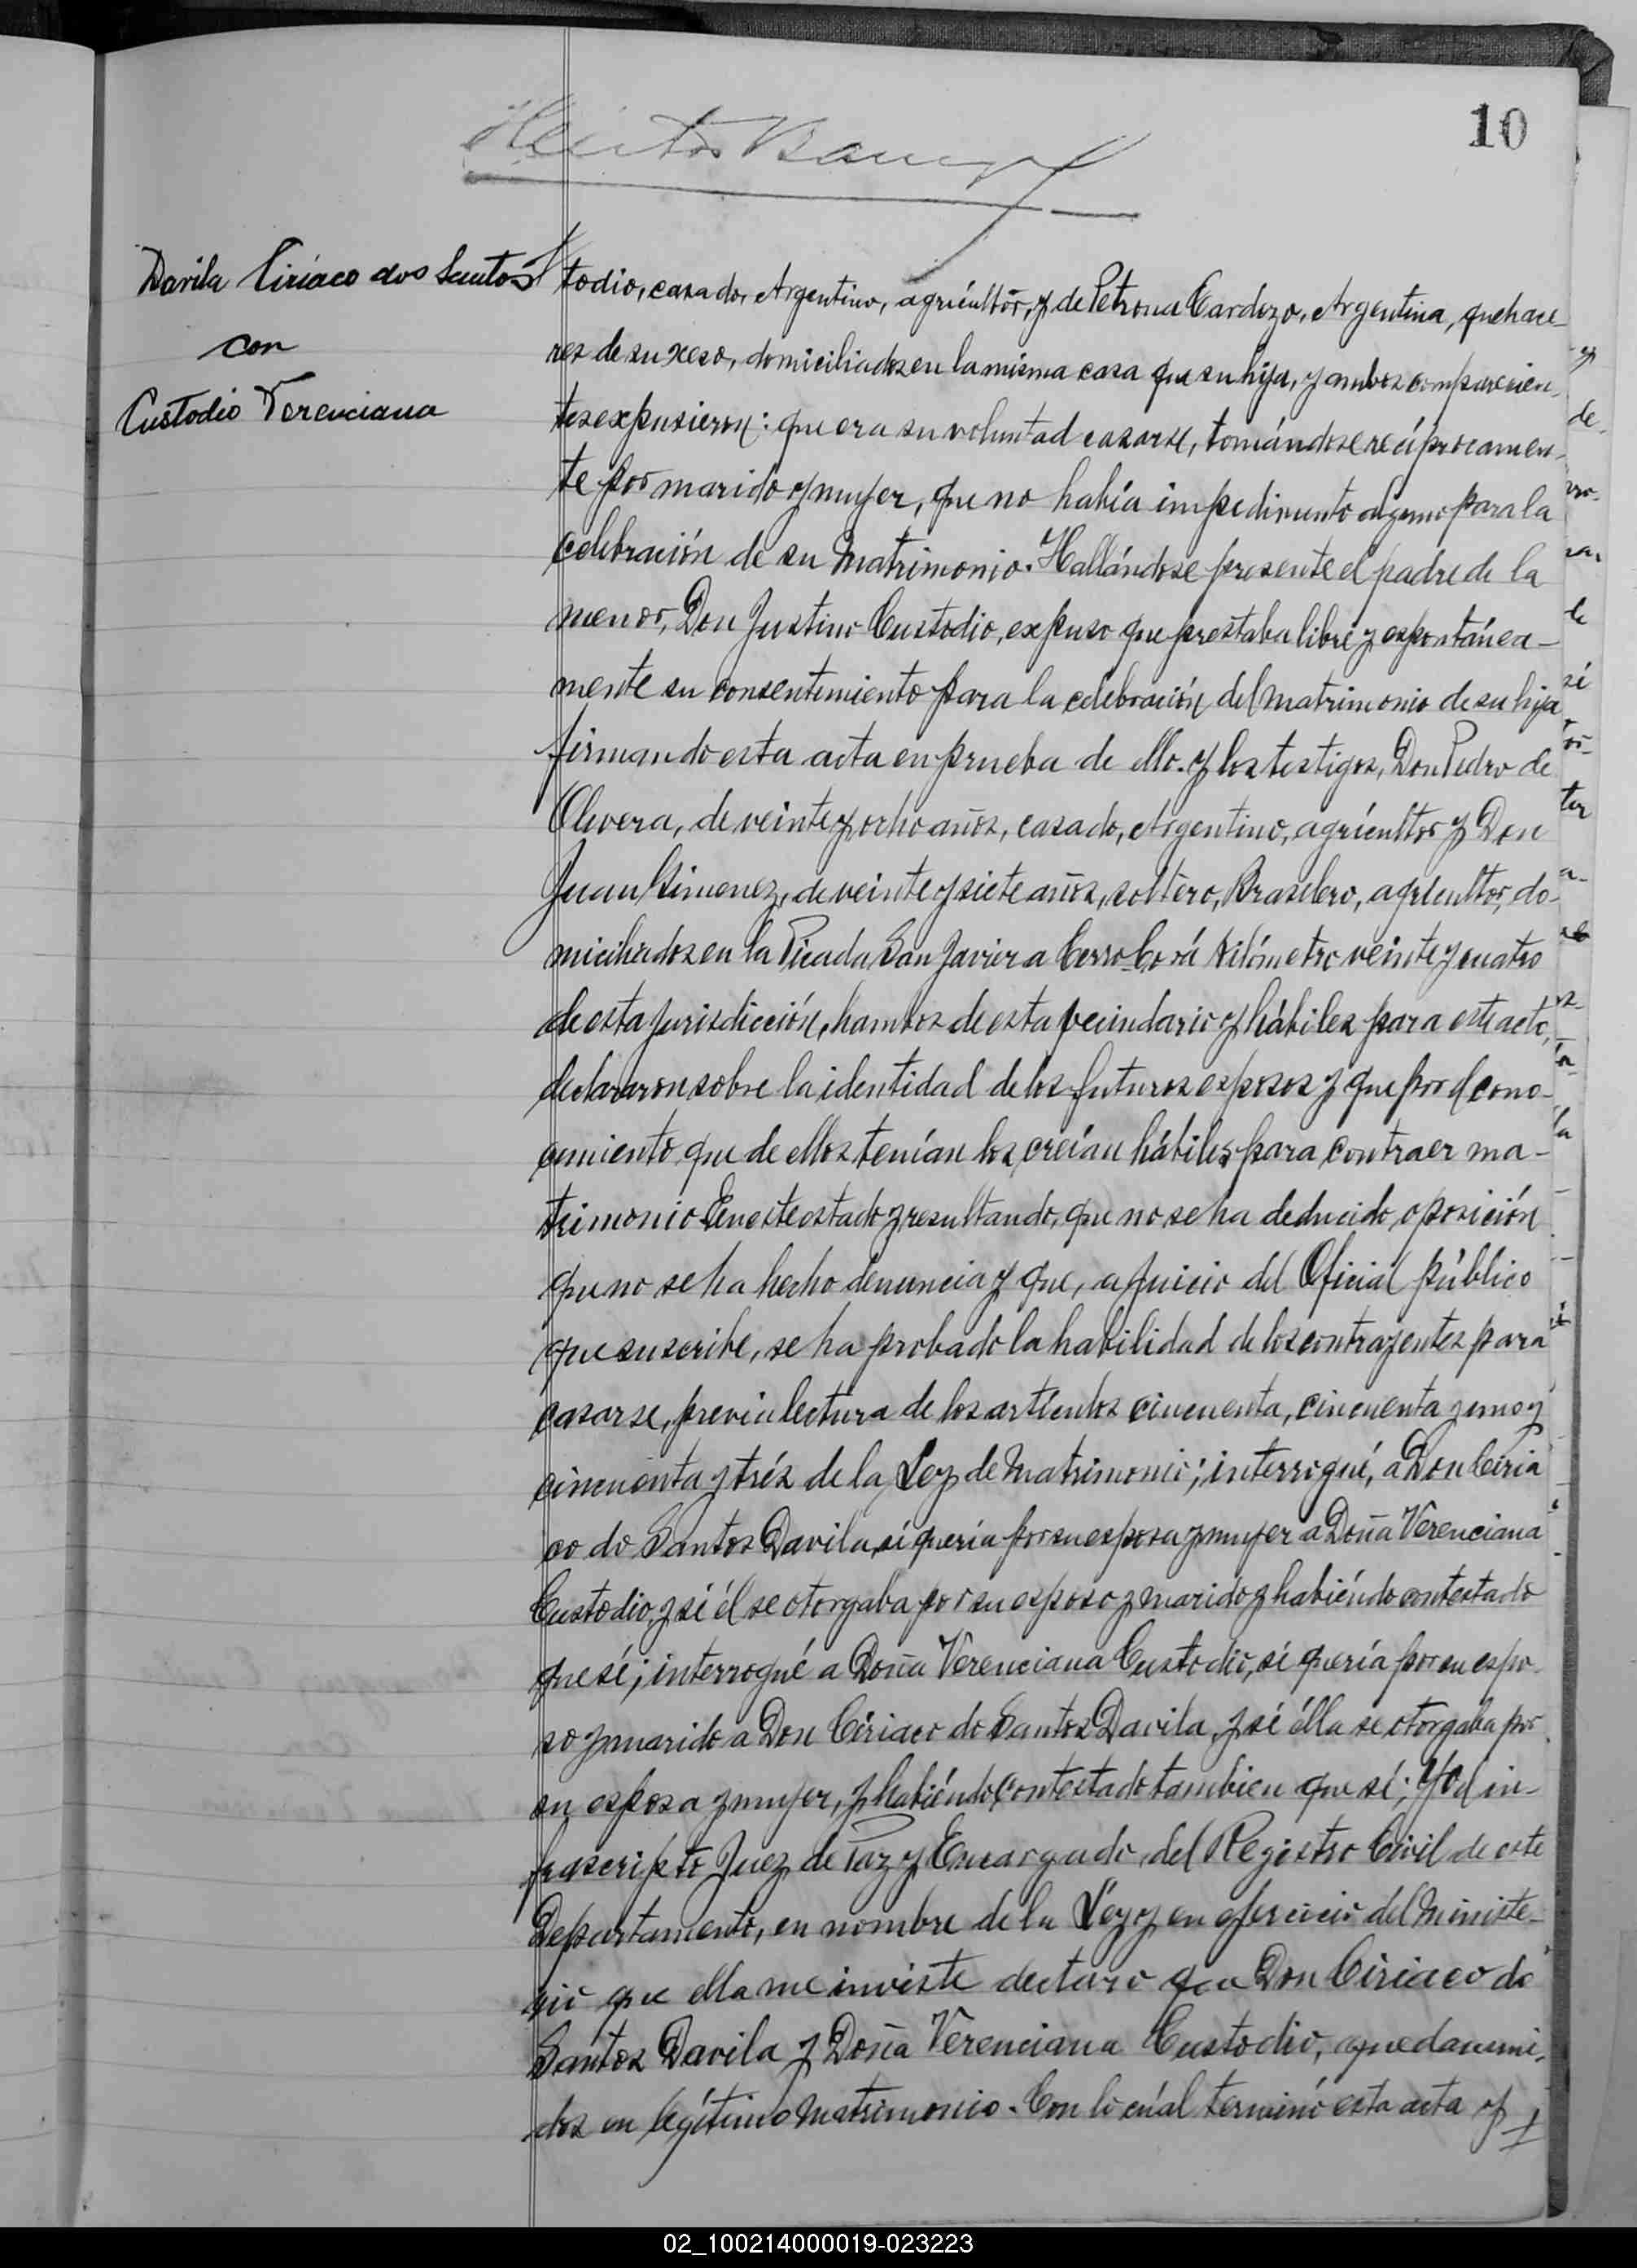 10
Davila Ciriaco dos Santos
con
Custodio Verenciana
todio, casado, Argentino, agricultor, y de Petrona Cardozo, Argentina, quehace-
res de su xeso, domiciliados en la misma casa que su hija, y ambos comparecien-
tes expusieron: que era su voluntad casarse, tomándose recíprocamen-
te por marido y mujer, que no había impedimento alguno para la
celebración de su matrimonio. Hallándose presente el padre de la
menor, Don Justino Custodio, expuso que prestaba libre y espontánea-
mente su consentimiento para la celebración del matrimonio de su hija
firmando esta acta en prueba de ello. y los testigos, Don Pedro de
Olivera, de veinte y ocho años, casado, Argentino, agricultor y Don
Juan Gimenez, de veinte y siete años, soltero, Brasilero, agricultor, do-
miciliados en la Picada San Javier a Cerro-Corá kilómetro veinte y cuatro
de esta jurisdicción, hambos de esta vecindario y hábiles para este acto,
declararon sobre la identidad de los futuros esposos y que por el cono-
cimiento que de ellos tenían los creían hábiles para contraer ma-
trimonio. En este estado y resultando, que no se ha deducido oposición
que no se ha hecho denuncia y que, a juicio del Oficial público
que suscribe, se ha probado la habilidad de los contrayentes para
casarse, previa lectura de los artículos cincuenta, cincuenta y uno y
cincuenta y trés de la Ley de Matrimonio; interrogué, a Don Ciria
co do Santos Davila, si quería por su esposa y mujer a Doña Verenciana
Custodio, y sí él se otorgaba por su esposo y marido y habiéndo contestado
que sí; interrogué a Doña Verenciana Custodio, si quería por su espo-
so y marido a Don Ciriaco do Santos Davila, y sí élla se otorgaba por
su esposa y mujer, y habiéndo contestado tambien que sí; Yo el in-
frascripto Juez de Paz y Encargado del Registro Civil de este
Departamento, en nombre de la Ley y en ejercicio del Ministe-
rio que ella me inviste declaro que Don Ciriaco do
Santos Davila y Doña Verenciana Custodio, quedan uni-
dos en legítimo Matrimonio. Con lo cuál terminó esta acta y
02_100214000019-023223